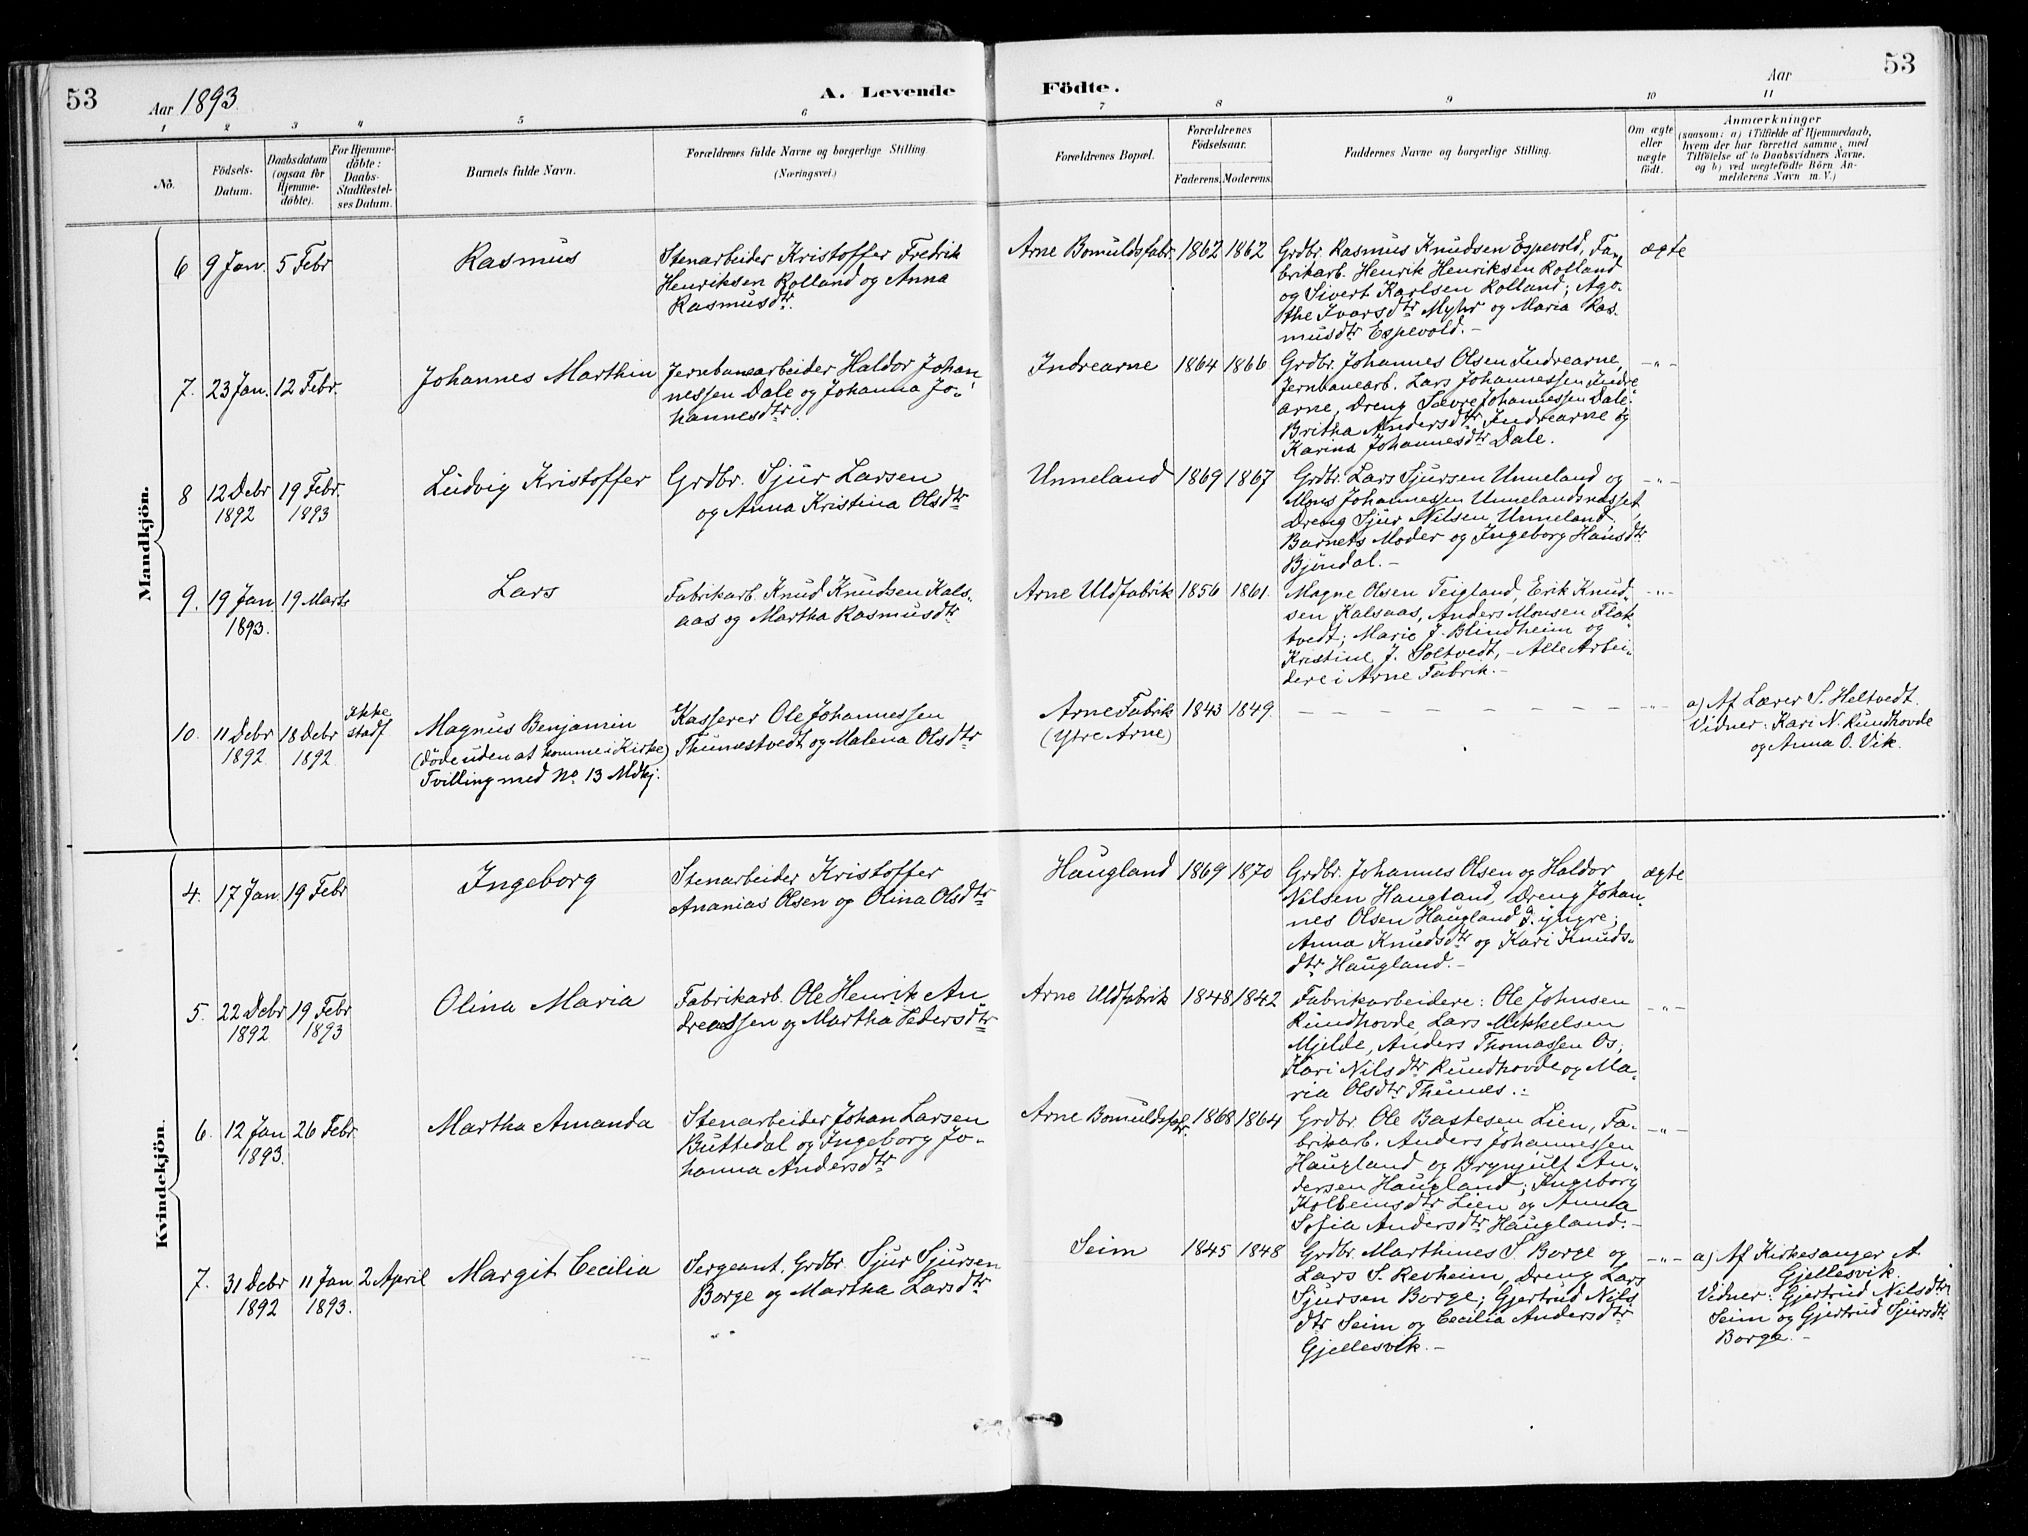 53
Aar 1893.
A. Levende
Födte.
Aar
53
1
2
3
4
5
6
7
8
9
10
11
No.
Födsels-
Datum.
Daabsdatum
(ogsaa for
Hjemme-
döbte).
For Hjemme-
döbte:
Daabs-
Stadfæstel-
ses Datum.
Barnets fulde Navn.
Forældrenes fulde Navne og borgerlige Stilling
(Næringsvei.)
Forældrenes Bopæl.
Forældrenes
Födselsaar.
Faderens.
Moderens.
Faddernes Navne og borgerlige Stilling.
Om ægte
eller
uægte
født.
Anmærkninger
(saasom: a) i Tilfælde af Hjemmedaab,
hvem der har forrettet samme, med
Tilföielse af to Daabsvidners Navne,
og b) ved uægtefödte Börn An-
melderens Navn m. V.)
Mandkjön.
6
9 Jan.
5 Febr
Rasmus
Stenarbeider Kristoffer Fredrik
Henriksen Rolland og Anna
Rasmusdtr.
Arne Bomuldsfabr.
1862
1862
Grdbr. Rasmus Knudsen Espevold, Fa-
brikarb. Henrik Henriksen Rolland
og Sivert Karlsen Rolland; Ago-
the Ivarsdtr Myhr og Maria Ras-
musdtr Espevold. -
ægte
7.
23 Jan.
12 Febr.
Johannes Marthin
Jernbanearbeider Haldor Johan-
nessen Dale og Johanna Jo-
hannesdtr
Indrearne
1864
1866
Grdbr. Johannes Olsen Indrearne,
Jernbanearb. Lars Johannessen Indre
arne, Dreng Sævre Johannessen Dale;
Britha Andersdtr Indrearne og
Karina Johannesdtr Dale.
-"-
8
12 Debr
1892
19 Febr.
1893
Ludvig Kristoffer
Grdbr. Sjur Larsen
og Anna Kristina Olsdtr
Unneland
1869
1867
Grdbr. Lars Sjursen Unneland og
Mons Johannessen Unnelandsnesset,
Dreng Sjur Nilsen Unneland;
Barnets Moder og Ingeborg Hansdtr
Bjøndal. -
-"-
9.
19 Jan
1893.
19 Marts
Lars
Fabrikarb. Knud Knudsen Kals-
aas og Martha Rasmusdtr
Arne Uldfabrik
1856
1861.
Magne Olsen Teigland, Erik Knud-
sen Kalsaas, Anders Monsen Flat-
tvedt; Marie J. Blindheim og
Kristine J. Soltvedt, - Alle Arbei-
dere i Arne Fabrik. -
-"-
10.
11 Debr
1892
18 Debr
1892
Ikke
stadf
Magnus Benjamin
(döde uden at komme i Kirke)
Tvilling med No 13 Mdkj.
Kasserer Ole Johannessen
Thunestvedt og Malena Olsdtr
Arne Fabrik
(Ytre Arne)
1843
1849
- - - - - - - - -
-"-
a) Af Lærer S. Heltvedt.
Vidner: Kari N. Rundhovde
og Anna O. Vik.
Kvindekjön.
4.
17 Jan.
19 Febr
Ingeborg
Stenarbeider Kristoffer
Ananias Olsen og Olina Olsdtr
Haugland
1869
1870
Grdbr. Johannes Olsen og Haldor
Nilsen Haugland, Dreng Johan-
nes Olsen Haugland d. yngre;
Anna Knudsdtr og Kari Knuds-
dtr Haugland. -
ægte
5.
22 Debr
1892
19 Febr
1893
Olina Maria
Fabrikarb. Ole Henrik An-
dreassen og Martha Pedersdtr
Arne Uldfabrik
1848
1842
Fabrikarbeidere: Ole Johnsen
Rundhovde, Lars Mikkelsen
Mjelde, Anders Thomassen Os;
Kari Nilsdtr Rundhovde og Ma-
ria Olsdtr Thunes. -
-"-
6.
12 Jan
1893.
26 Febr.
Martha Amanda
Stenarbeider Johan Larsen
Buttedal og Ingeborg Jo-
hanna Andersdtr
Arne Bomuldsfbr.
1868
1864
Grdbr. Ole Bastesen Lien, Fa-
brikarb. Anders Johannessen
Haugland og Brynjulf An-
dersen Haugland; Ingeborg
Kolbeinsdtr Lien og Anna
Sofia Andersdtr Haugland. -
-"-
7.
31 Debr
1892
11 Jan
1893.
2 April
Margit Cecilia
Sergeant. Grdbr. Sjur Sjursen
Borge og Martha Larsdtr
Seim
1845
1848
Grdbr. Marthines S. Borge og
Lars S. Revheim, Dreng Lars
Sjursen Borge; Gjertrud Nils
dtr Seim og Cecilia Andersdtr
Gjellesvik. -
-"-
a) Af Kirkesanger A.
Gjellesvik.
Vidner: Gjertrud Nilsdtr
Seim og Gjertrud Sjursdtr
Borge. -